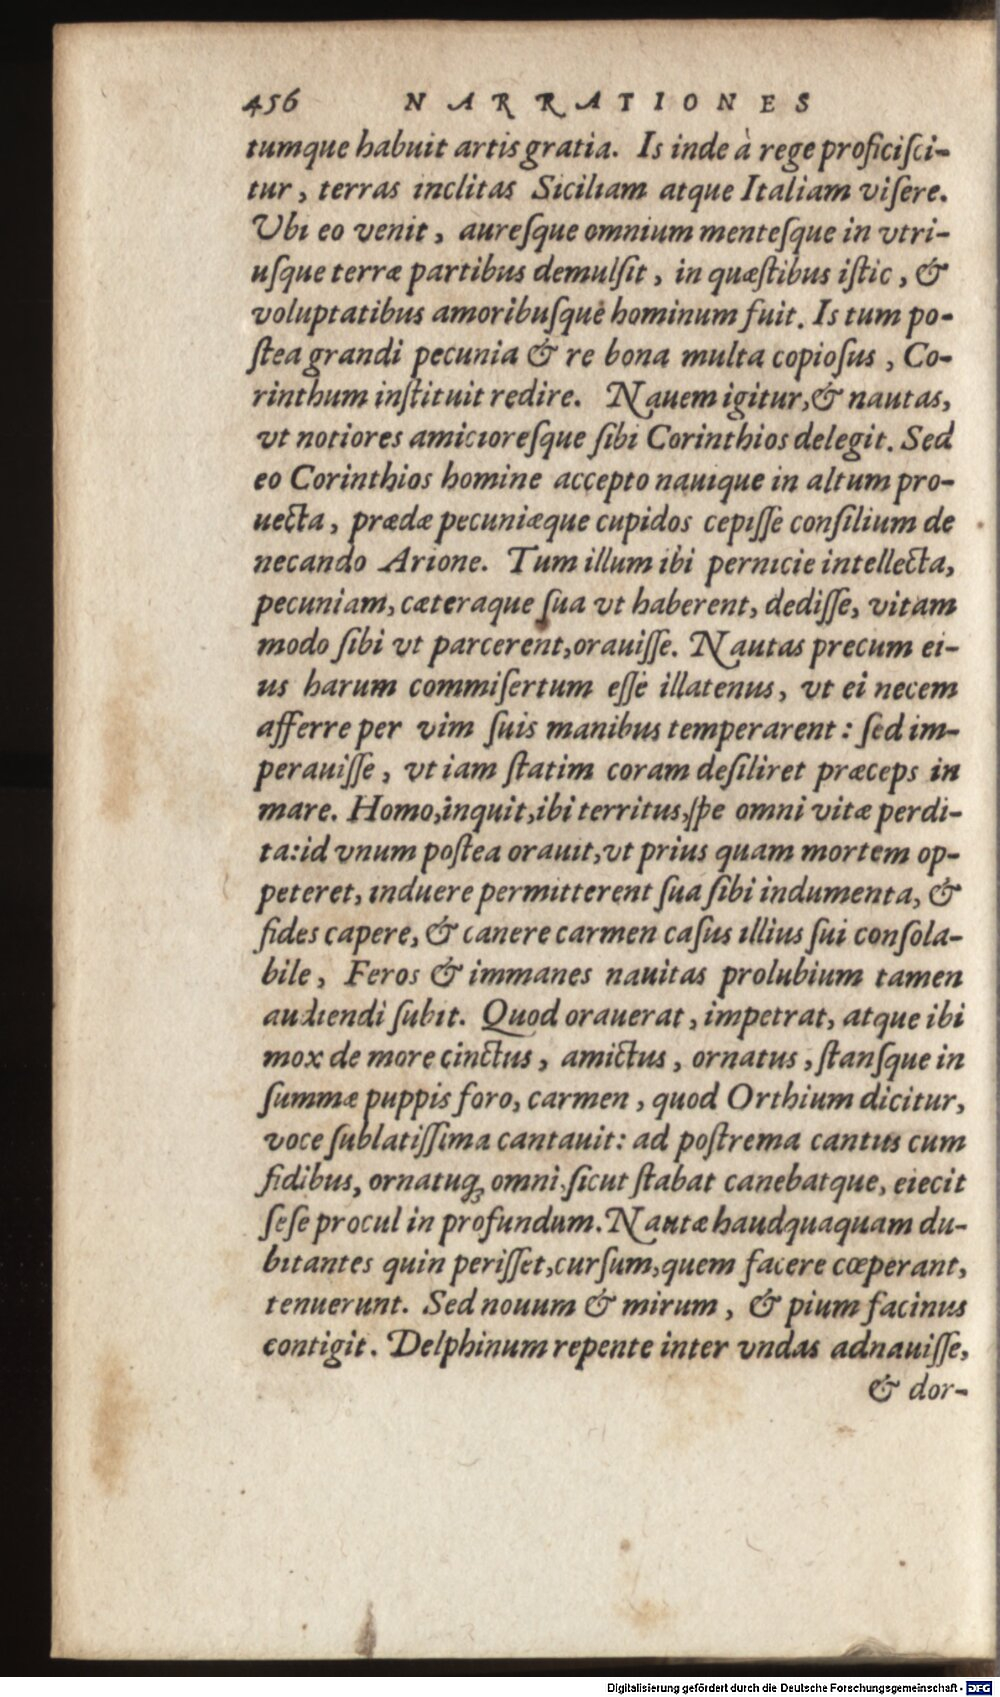 456 NARRATIONES
tumque habuit artis gratia. Is inde à rege proficiſci-
tur, terras inclitas Siciliam atque Italiam viſere.
Ubi eo venit, aureſque omnium menteſque in vtri-
uſque terræ partibus demulſit, in quæſtibus iſtic, &
voluptatibus amoribuſque hominum fuit. Is tum po-
ſtea grandi pecunia & re bona multa copioſus, Co-
rinthum inſtituit redire. Nauem igitur, & nautas,
vt notiores amicioreſque ſibi Corinthios delegit. Sed
eo Corinthios homine accepto nauique in altum pro-
uecta, prædæ pecuniæque cupidos cepiſſe conſilium de
necando Arione. Tum illum ibi pernicie intellecta,
pecuniam, cæteraque ſua vt haberent, dediſſe, vitam
modo ſibi vt parcerent, orauiſſe. Nautas precum ei-
us harum commiſertum eſſe illatenus, vt ei necem
afferre per vim ſuis manibus temperarent: ſed im-
perauiſſe, vt iam ſtatim coram deſiliret præceps in
mare. Homo, inquit, ibi territus, ſpe omni vitæ perdi-
ta: id vnum poſtea orauit, vt prius quam mortem op-
peteret, induere permitterent ſua ſibi indumenta, &
fides capere, & canere carmen caſus illius ſui conſola-
bile, Feros & immanes nauitas prolubium tamen
audiendi ſubit. Quod orauerat, impetrat, atque ibi
mox de more cinctus, amictus, ornatus, ſtanſque in
ſummæ puppis foro, carmen, quod Orthium dicitur,
voce ſublatiſſima cantauit: ad poſtrema cantus cum
fidibus, ornatuq; omni, ſicut ſtabat canebatque, eiecit
ſeſe procul in profundum. Nautæ haudquaquam du-
bitantes quin periſſet, curſum, quem facere cœperant,
tenuerunt. Sed nouum & mirum, & pium facinus
contigit. Delphinum repente inter vndas adnauiſſe,
& dor-
Digitalisierung gefördert durch die Deutsche Forschungsgemeinschaft - DFG